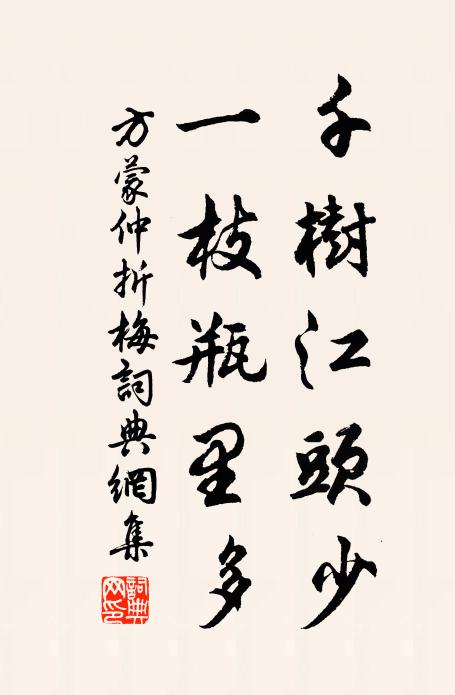 千樹江頭少
一枝瓶里多
方蒙仲折梅詞典網集
詞典
网印